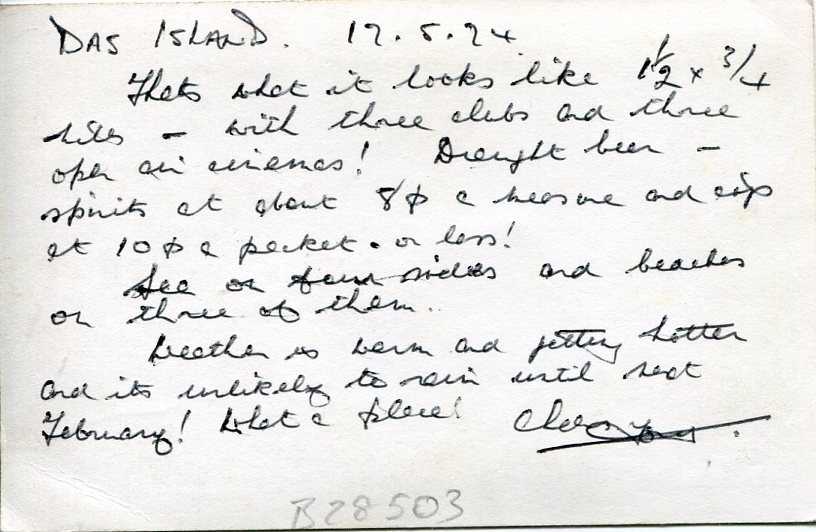 DAS ISLAND. 17.5.74
Thats what it looks like 1½ x 3/4
miles - with three clubs and three
open air cinemas! Draught beer -
spirits at about 8p a measure and cigs
at 10p a packet. or less!
Sea on four sides and beaches
on three of them.
Weather is warm and getting hotter
and its unlikely to rain until next
February! What a place!
B28503